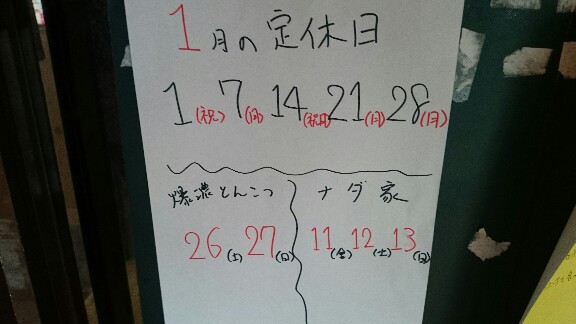 1月の定休日
1(祝) 7(月) 14(祝月) 21(月) 28(月)
爆濃とんこつ
ナダ家
26(土) 27(日)
11(金) 12(土) 13(日)